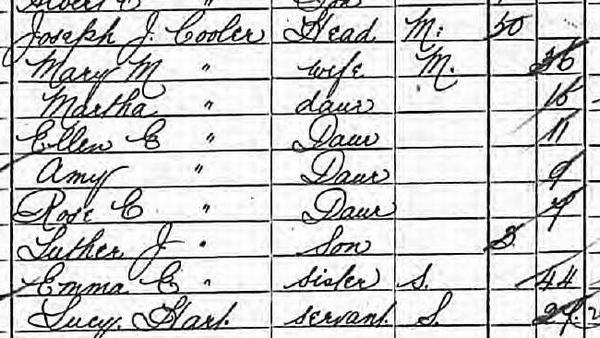 Albert E " Son
Joseph J. Cooler Head M. 50
Mary M " wife M. 36
Martha " daur 15
Ellen E " Daur 11
Amy " Daur 9
Rose C " Daur 7
Luther J " Son 3
Emma E " sister S. 44
Lucy Hart. servant S. 27